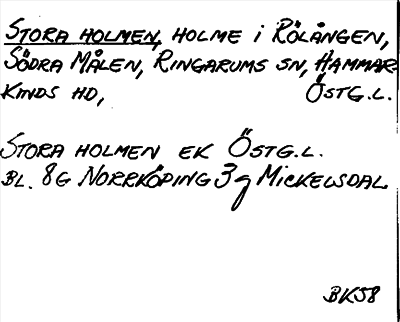 STORA HOLMEN, HOLME I RÖLÅNGEN,
SÖDRA MÅLEN, RINGARUMS SN, HAMMAR-
KINDS HD, ÖSTG.L.
STORA HOLMEN EK ÖSTG.L.
BL. 8G NORRKÖPING 3g MICKELSDAL
BK58